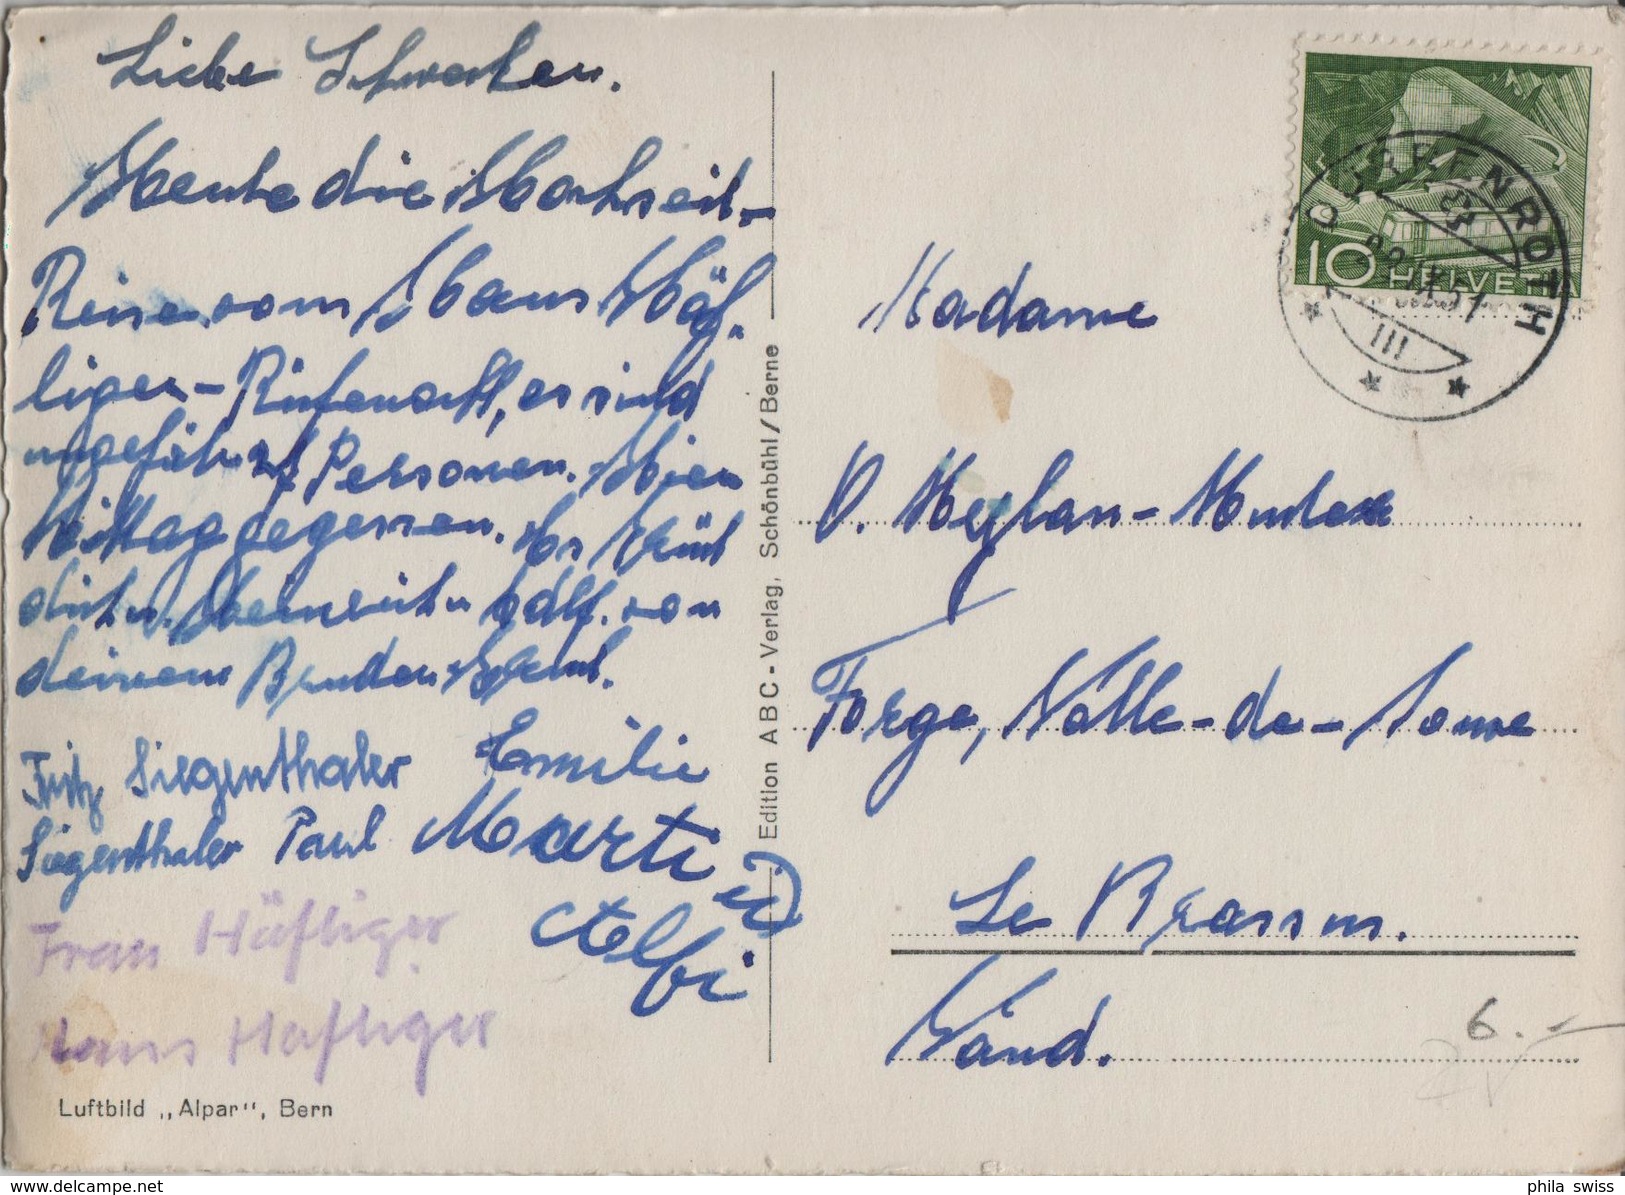 Liebe Schwester.
Heute die Hochzeit-
Reise vom Hans Häf-
liger-Rüfenacht, es sind
ungefähr Personen. Hier
Mittag gegessen. Es
dich u. Heinrich u.  von
deinem Bruder
Fritz Siegenthaler Emilie
Siegenthaler Paul Marti
Frau Häfliger
Hans Hafliger
Luftbild „Alpar“, Bern
Edition ABC-Verlag, Schönbühl/Berne
10 HELVETIA
DÜRRENROTH
III
Madame
Meylan-
Forge, Vallé-de-
Le Brassus.
Váud.
6.-
www.delcampe.net
phila_swiss